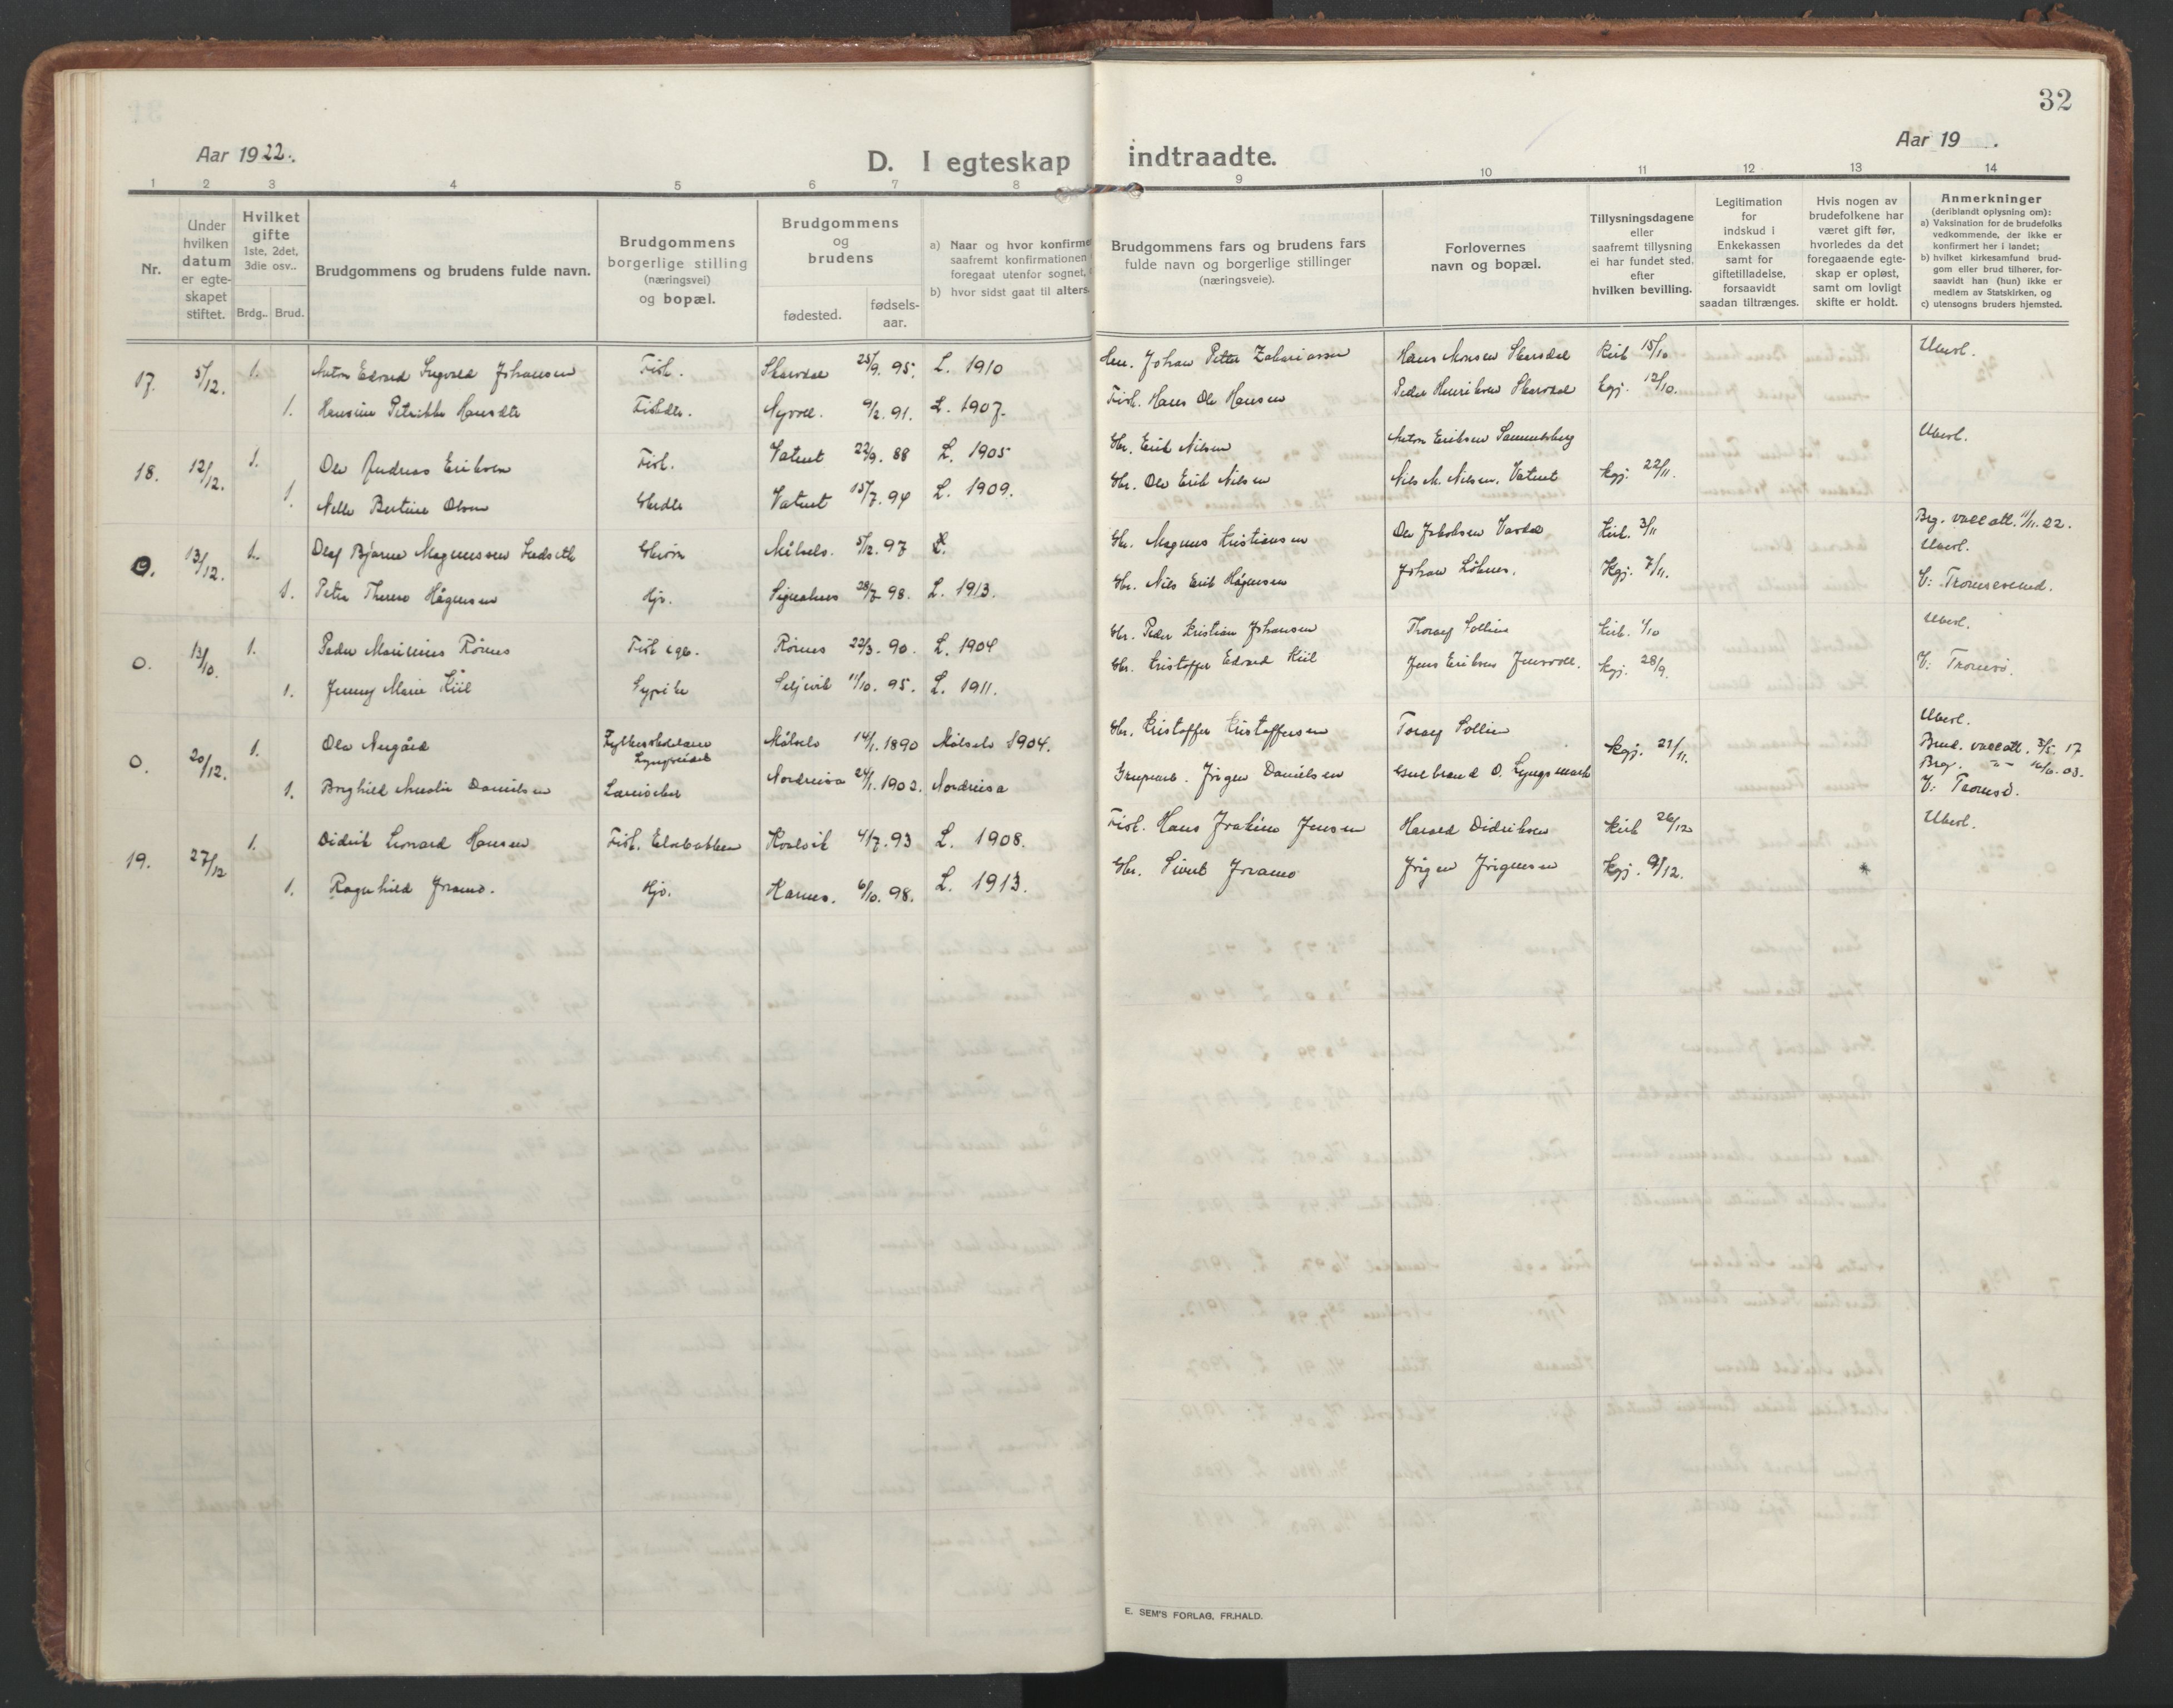 32
Aar 1922.
Aar 19 .
D. I egteskap indtraadte.
1 2 3 4 5 6 7 8 9 10 11 12 13 14
Nr.
Under hvilken datum er egte-skapet stiftet.
Hvilket gifte
1ste, 2det, 3die osv..
Brdg.. Brud.
Brudgommens og brudens fulde navn.
Brudgommens borgerlige stilling (næringsvei) og bopæl.
Brudgommens og brudens
fødested.
fødsels-aar.
a) Naar og hvor konfirme
saafremt konfirmationen
foregaat utenfor sognet,
b) hvor sidst gaat til alters.
Brudgommens fars og brudens fars
fulde navn og borgerlige stillinger
(næringsveie).
Forlovernes
navn og bopæl.
Tillysningsdagene
eller
saafremt tillysning
ei har fundet sted.
efter
hvilken bevilling.
Legitimation
for
indskud i
Enkekassen
samt for
giftetilladelse,
forsaavidt
saadan tiltrænges.
Hvis nogen av
brudefolkene har
været gift før,
hvorledes da det
foregaaende egte-
skap er opløst,
samt om lovligt
skifte er holdt.
Anmerkninger
(deriblandt oplysning om):
a) Vaksination for de brudefolks
vedkommende, der ikke er
konfirmert her i landet;
b) hvilket kirkesamfund brud-
gom eller brud tilhører, for-
saavidt han (hun) ikke er
medlem av Statskirken, og
c) utensogns bruders hjemsted.
17. 5/12. 1. Anton Edvard Ingvald Johansen Fisk. Skardal 25/9. 95. L. 1910 Johan Peter Zakariassen Hans Monsen Skardal Kirk 15/10 Ubesl.
1. Hansine Petrikke Hansdtr Fiskdtr. Nyvoll. 9/2. 91. L. 1907. Fisk. Hans Ole Hansen Peder Henriksen Skardal kgj. 12/10.
18. 12/12. 1. Ole Andreas Eriksen Fisk. Vatnet 22/9. 88 L. 1905 Gbr. Erik Nilsen Anton Eriksen Ubesl.
1. Nelle Bertine Olsen Gbrdtr Vatnet 15/7. 94 L. 1909. Gbr. Ole Erik Nilsen Nils M. Nilsen, Vatnet kgj. 22/11.
0. 13/12. 1. Olaf Bjarne Magnussen Målselv. 5/12. 97 L. Gbr. Magnus Kristiansen Ole Jakobsen Kirk. 3/11 Brg. vakc att. 11/11. 22. Ubesl.
1. Hågensen Hjv. 28/7 98. L. 1913. Gbr. Nils Erik Hågensen Johan Kgj. 7/11. V: Tromsøsund.
0. 13/10. 1. Peder Marinius Rörnes Rörnes 22/3. 90. L. 1904 Gbr. Peder Kristian Johansen Thoralf Sollie Kirk. 1/10 Ubesl.
1. Jenny Marie Kiil Sypike 11/10. 95. L. 1911. Gbr. Kristoffer Edvard Kiil Jens Eriksen kgj. 28/9. V: Tromsö.
0. 20/12. 1. Ole Nergård Lyngseidet Målselv 14/1. 1890 Målselv 1904. Gbr. Kristoffer Kristoffersen Toralf Sollie kgj. 21/11. Ubesl.
Brud. vakc att. 3/5. 17
1. Borghild Amalie Danielsen Nordreisa 24/1. 1902. Nordreisa Jörgen Danielsen Gulbrand O. Lyngsmark Brg.
V: Tromsö.
19. 27/12 1. Didrik Leonard Hansen Fisk. Elvebakken Koalvik 4/7. 93 L. 1908. Fisk. Hans Joakim Jensen Harald Didriksen Kirk 26/12 Ubesl.
1. Ragnhild Hjv. Karnes. 6/10. 98. L. 1913. Gbr. Sivert Jörgen Jörgensen Kgj. 9/12.
E. SEM'S FORLAG, FR.HALD.